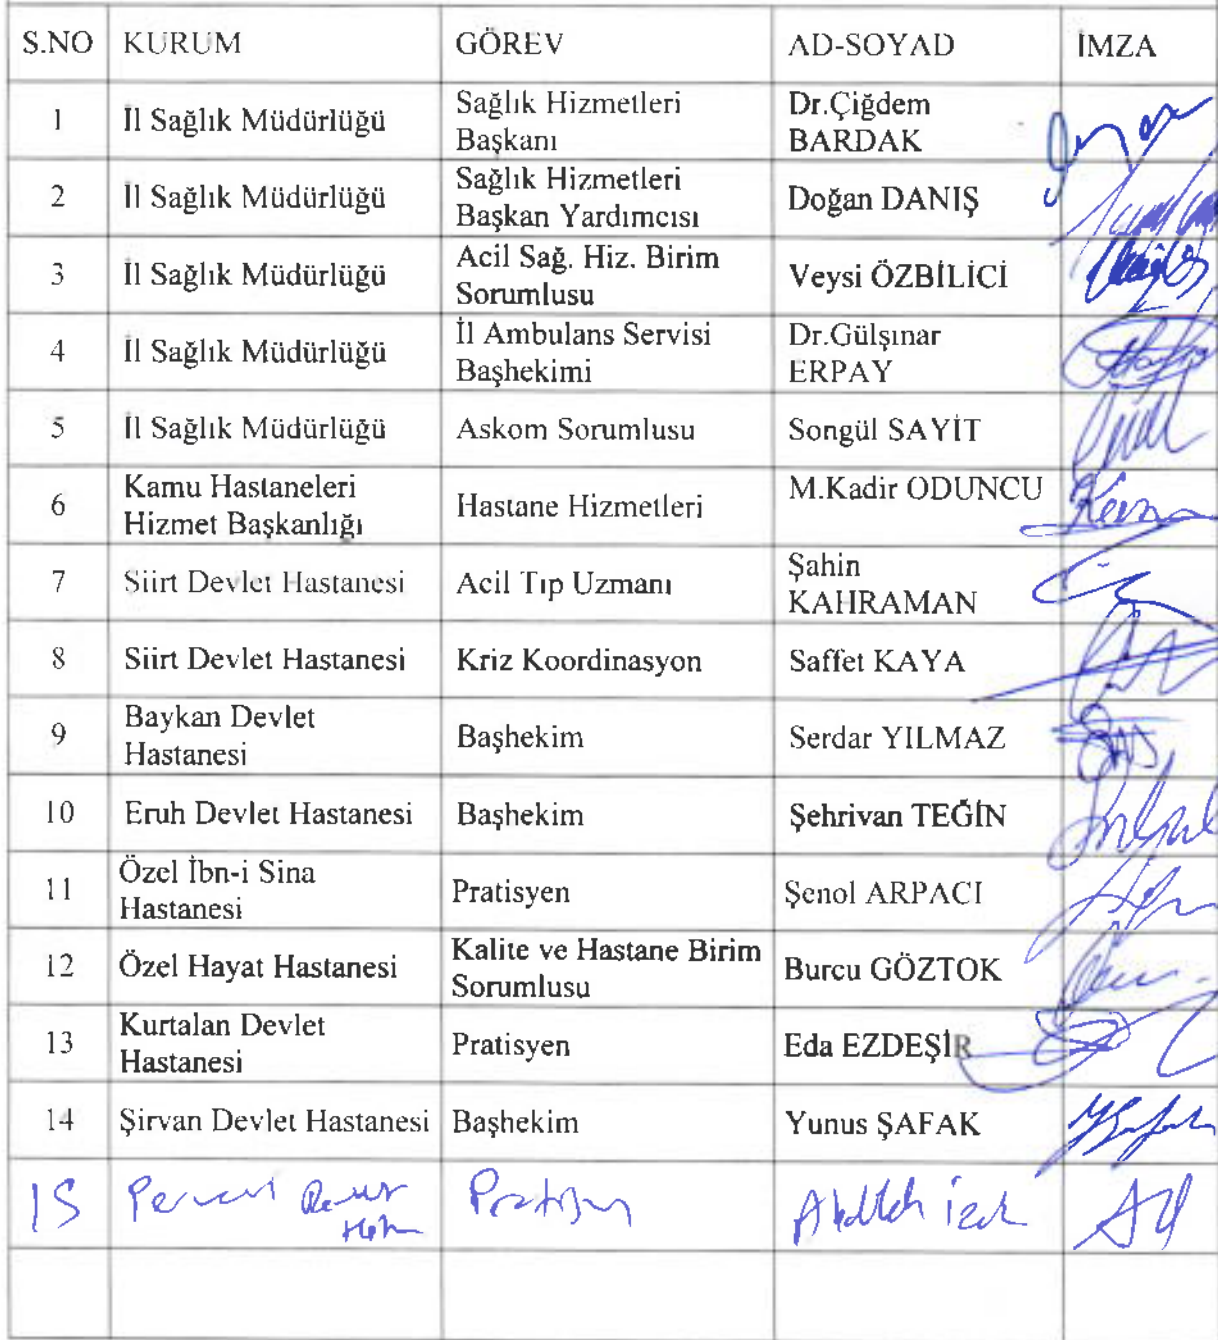 S.NO KURUM GÖREV AD-SOYAD İMZA
1 İl Sağlık Müdürlüğü Sağlık Hizmetleri Başkanı Dr.Çiğdem BARDAK
2 İl Sağlık Müdürlüğü Sağlık Hizmetleri Başkan Yardımcısı Doğan DANIŞ
3 İl Sağlık Müdürlüğü Acil Sağ. Hiz. Birim Sorumlusu Veysi ÖZBİLİCİ
4 İl Sağlık Müdürlüğü İl Ambulans Servisi Başhekimi Dr.Gülşınar ERPAY
5 İl Sağlık Müdürlüğü Askom Sorumlusu Songül SAYİT
6 Kamu Hastaneleri Hizmet Başkanlığı Hastane Hizmetleri M.Kadir ODUNCU
7 Siirt Devlet Hastanesi Acil Tıp Uzmanı Şahin KAHRAMAN
8 Siirt Devlet Hastanesi Kriz Koordinasyon Saffet KAYA
9 Baykan Devlet Hastanesi Başhekim Serdar YILMAZ
10 Eruh Devlet Hastanesi Başhekim Şehrivan TEĞİN
11 Özel İbn-i Sina Hastanesi Pratisyen Şenol ARPACI
12 Özel Hayat Hastanesi Kalite ve Hastane Birim Sorumlusu Burcu GÖZTOK
13 Kurtalan Devlet Hastanesi Pratisyen Eda EZDEŞİR
14 Şirvan Devlet Hastanesi Başhekim Yunus ŞAFAK
15 Pervari Pratisyen